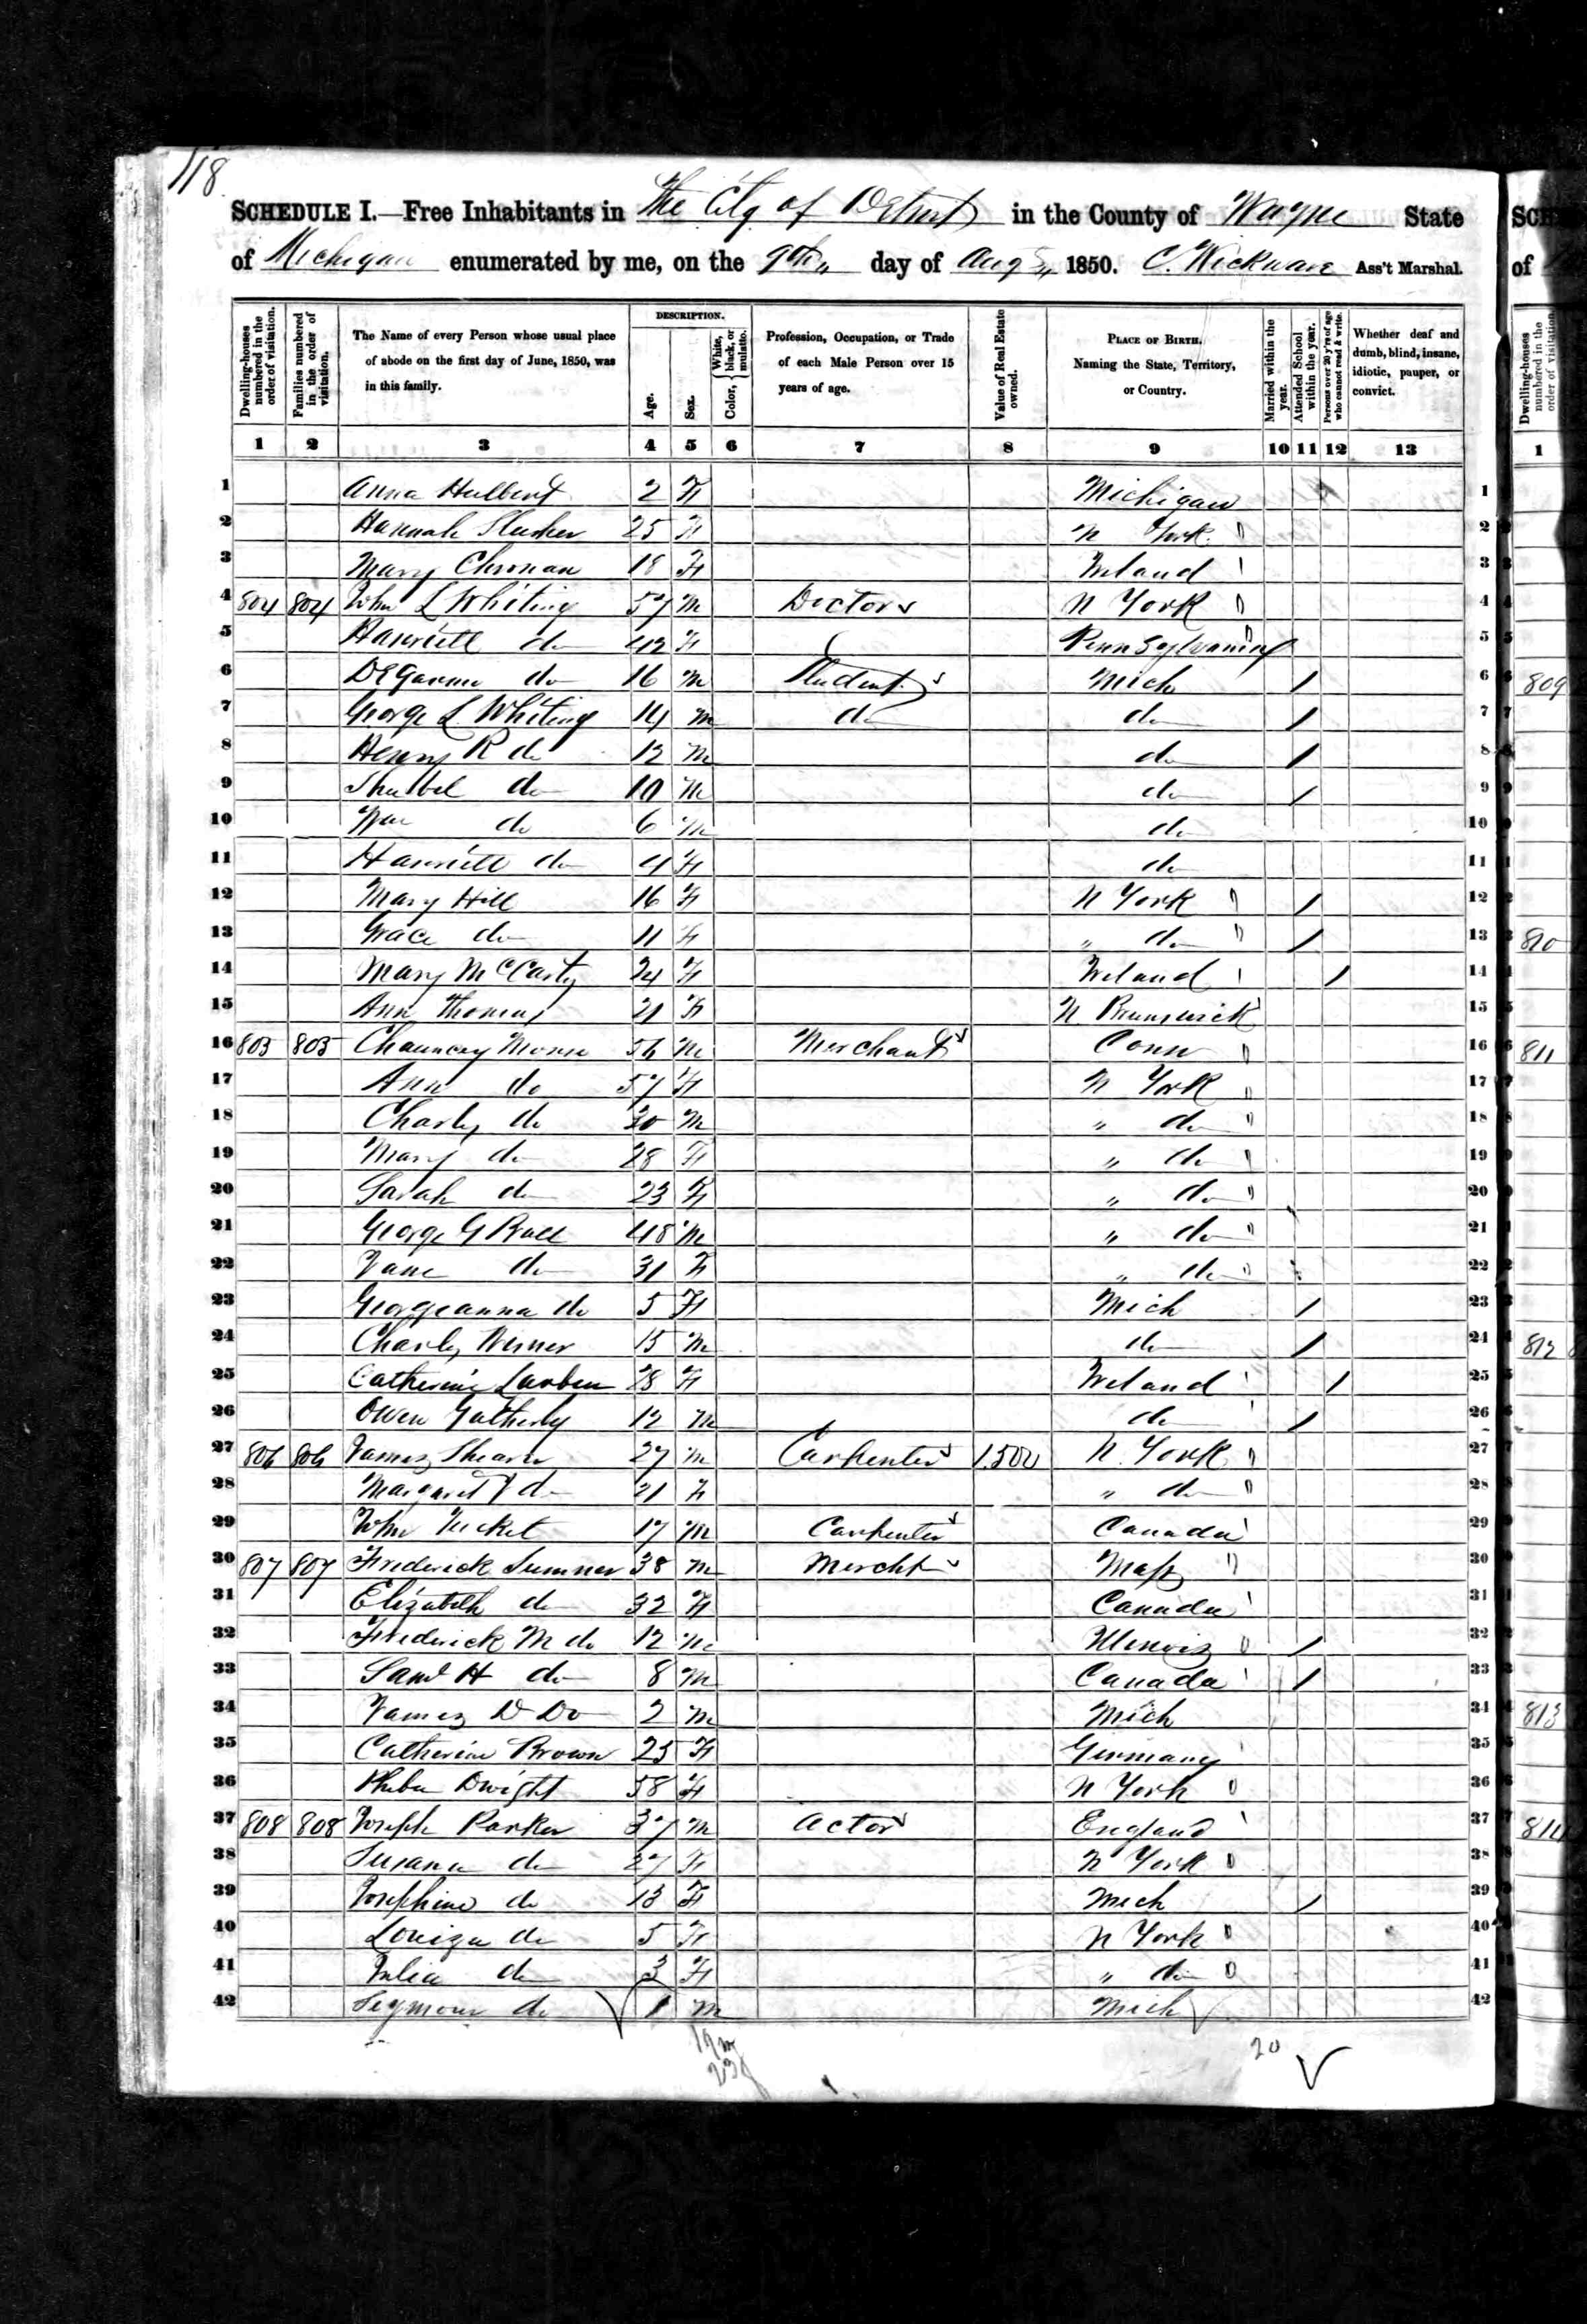 118
SCHEDULE I.—Free Inhabitants in The City of Detroit in the County of Wayne State
of Michigan enumerated by me, on the 9th day of Aug 1850. C. Wickware Ass't Marshal.
Dwelling-houses numbered in the order of visitation.
Families numbered in the order of visitation.
The Name of every Person whose usual place of abode on the first day of June, 1850, was in this family.
DESCRIPTION.
Age.
Sex.
Color, { White, black, or mulatto.
Profession, Occupation, or Trade of each Male Person over 15 years of age.
Value of Real Estate owned.
PLACE OF BIRTH. Naming the State, Territory, or Country.
Married within the year.
Attended School within the year.
Persons over 20 y'rs of age who cannot read & write.
Whether deaf and dumb, blind, insane, idiotic, pauper, or convict.
1 2 3 4 5 6 7 8 9 10 11 12 13
1 Anna Hulbert 2 F Michigan 1
2 Hannah 25 F N York 2
3 Mary Chronan 18 F Ireland 3
4 804 804 John L Whiting 57 M Doctor N York 4
5 Harriett do 42 F Pennsylvania 5
6 DeGarmo do 16 M Student Mich / 6
7 George L Whiting 14 M do do / 7
8 Henry R do 12 M do / 8
9 Shubel do 10 M do / 9
10 Wm do 6 M do 10
11 Harriett do 4 F do 11
12 Mary Hill 16 F N York / 12
13 Grace do 11 F " do / 13
14 Mary McCarty 24 F Ireland / 14
15 Ann Thomas 21 F N. Brunswick 15
16 805 805 Chauncey Morse 56 M Merchant Conn 16
17 Ann do 57 F N York 17
18 Charles do 30 M " do 18
19 Mary do 28 F " do 19
20 Sarah do 23 F " do 20
21 George G Bull 48 M " do 21
22 Jane do 31 F " do 22
23 Georgeanna do 5 F Mich / 23
24 Charles 15 M do / 24
25 Catherine 28 F Ireland / 25
26 Owen 12 M do / 26
27 806 806 James Shearer 27 M Carpenter 1.500 N. York 27
28 Margaret J do 21 F " do 28
29 John 17 M Carpenter Canada 29
30 807 807 Frederick Sumner 38 M Mercht Mass 30
31 Elizabeth do 32 F Canada 31
32 Frederick M do 12 M Illinois / 32
33 Saml H do 8 M Canada / 33
34 James D Do 2 M Mich 34
35 Catherine Brown 25 F Germany 35
36 Phebe Dwight 58 F N York 36
37 808 808 Joseph Parker 37 M Actor England 37
38 Susana do 27 F N York 38
39 Josephine do 13 F Mich / 39
40 Louiza do 5 F N York 40
41 Julia do 3 F " do 41
42 Seymour do 1 M Mich 42
19 m
23 f
20
SCH
of
Dwelling-houses numbered in the order of visitation.
1
809
810
811
812
813
814